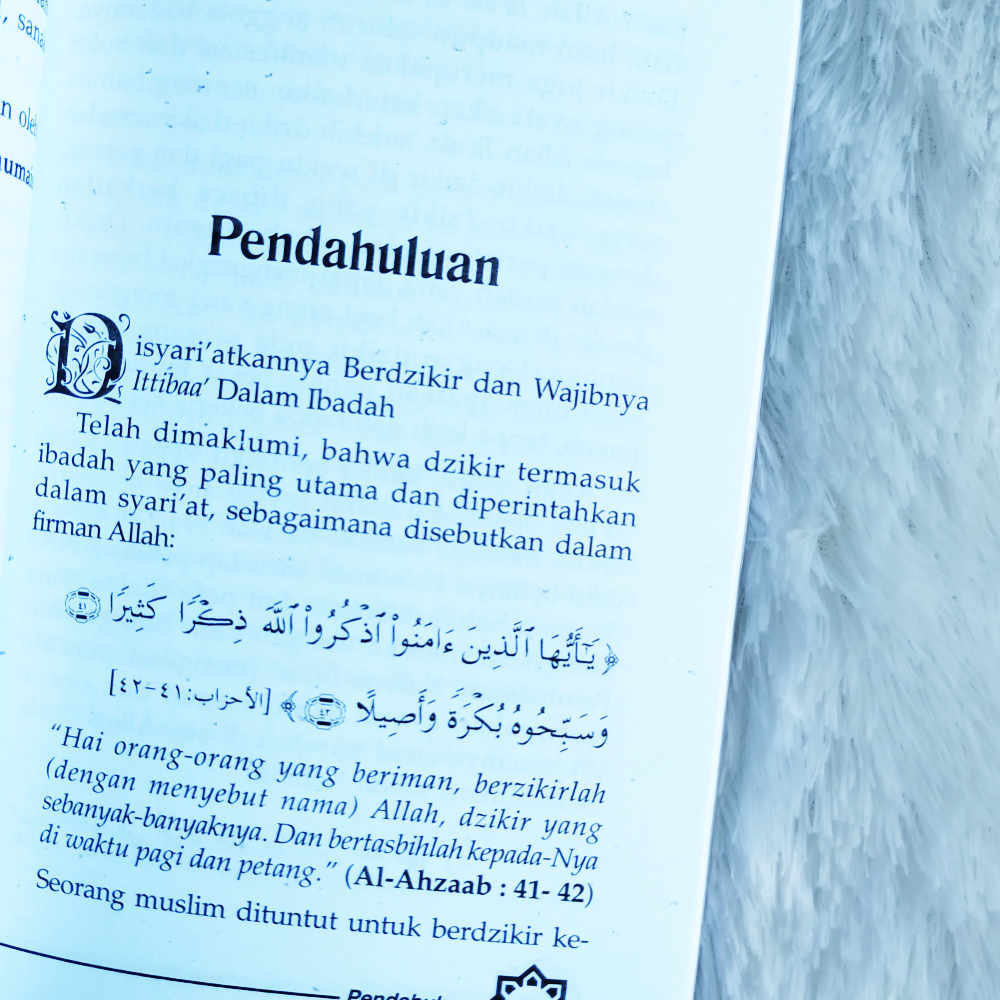 sana
n oleh
Pendahuluan
Disyari'atkannya Berdzikir dan Wajibnya
Ittibaa' Dalam Ibadah
Telah dimaklumi, bahwa dzikir termasuk
ibadah yang paling utama dan diperintahkan
dalam syari'at, sebagaimana disebutkan dalam
firman Allah:
﴿ يَـٰٓأَيُّهَا ٱلَّذِينَ ءَامَنُوا۟ ٱذْكُرُوا۟ ٱللَّهَ ذِكْرًا كَثِيرًا ٤١
وَسَبِّحُوهُ بُكْرَةً وَأَصِيلًا ٤٢ ﴾ [الأحزاب: ٤١-٤٢]
"Hai orang-orang yang beriman, berzikirlah
(dengan menyebut nama) Allah, dzikir yang
sebanyak-banyaknya. Dan bertasbihlah kepada-Nya
di waktu pagi dan petang." (Al-Ahzaab : 41- 42)
Seorang muslim dituntut untuk berdzikir ke-
Pendahul